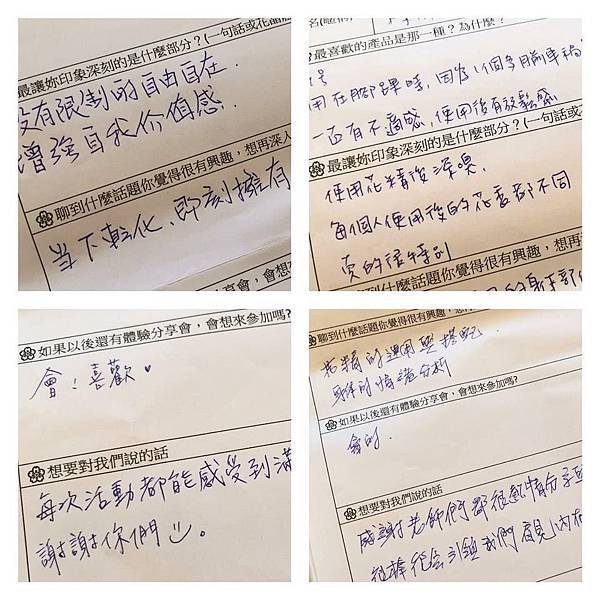 最讓妳印象深刻的是什麼部分?(一句話或花晶
沒有限制的自由自在.
增強自我价值感.
聊到什麼話題你覺得很有興趣，想再深入
當下轉化、即刻擁有
名(
最喜歡的產品是那一種？為什麼？
用在腳踝時，因為1個多月前車禍
一直有不適感，使用後有放鬆感
最讓妳印象深刻的是什麼部分?(一句話或
使用花精後深嗅.
每個人使用後的花香都不同
真的很特別
聊到什麼話題你覺得很有興趣，想再
如果以後還有體驗分享會，會想來參加嗎?
會！喜歡
想要對我們說的話
每次活動都能感受到滿
謝謝你們
聊到什麼話題你覺得很有興趣，想
花精的運用與搭配.
情緒分析
如果以後還有體驗分享會，會想來參加嗎?
會的.
想要對我們說的話
感謝老師們都很熱情分享
很棒 引領我們看見內在